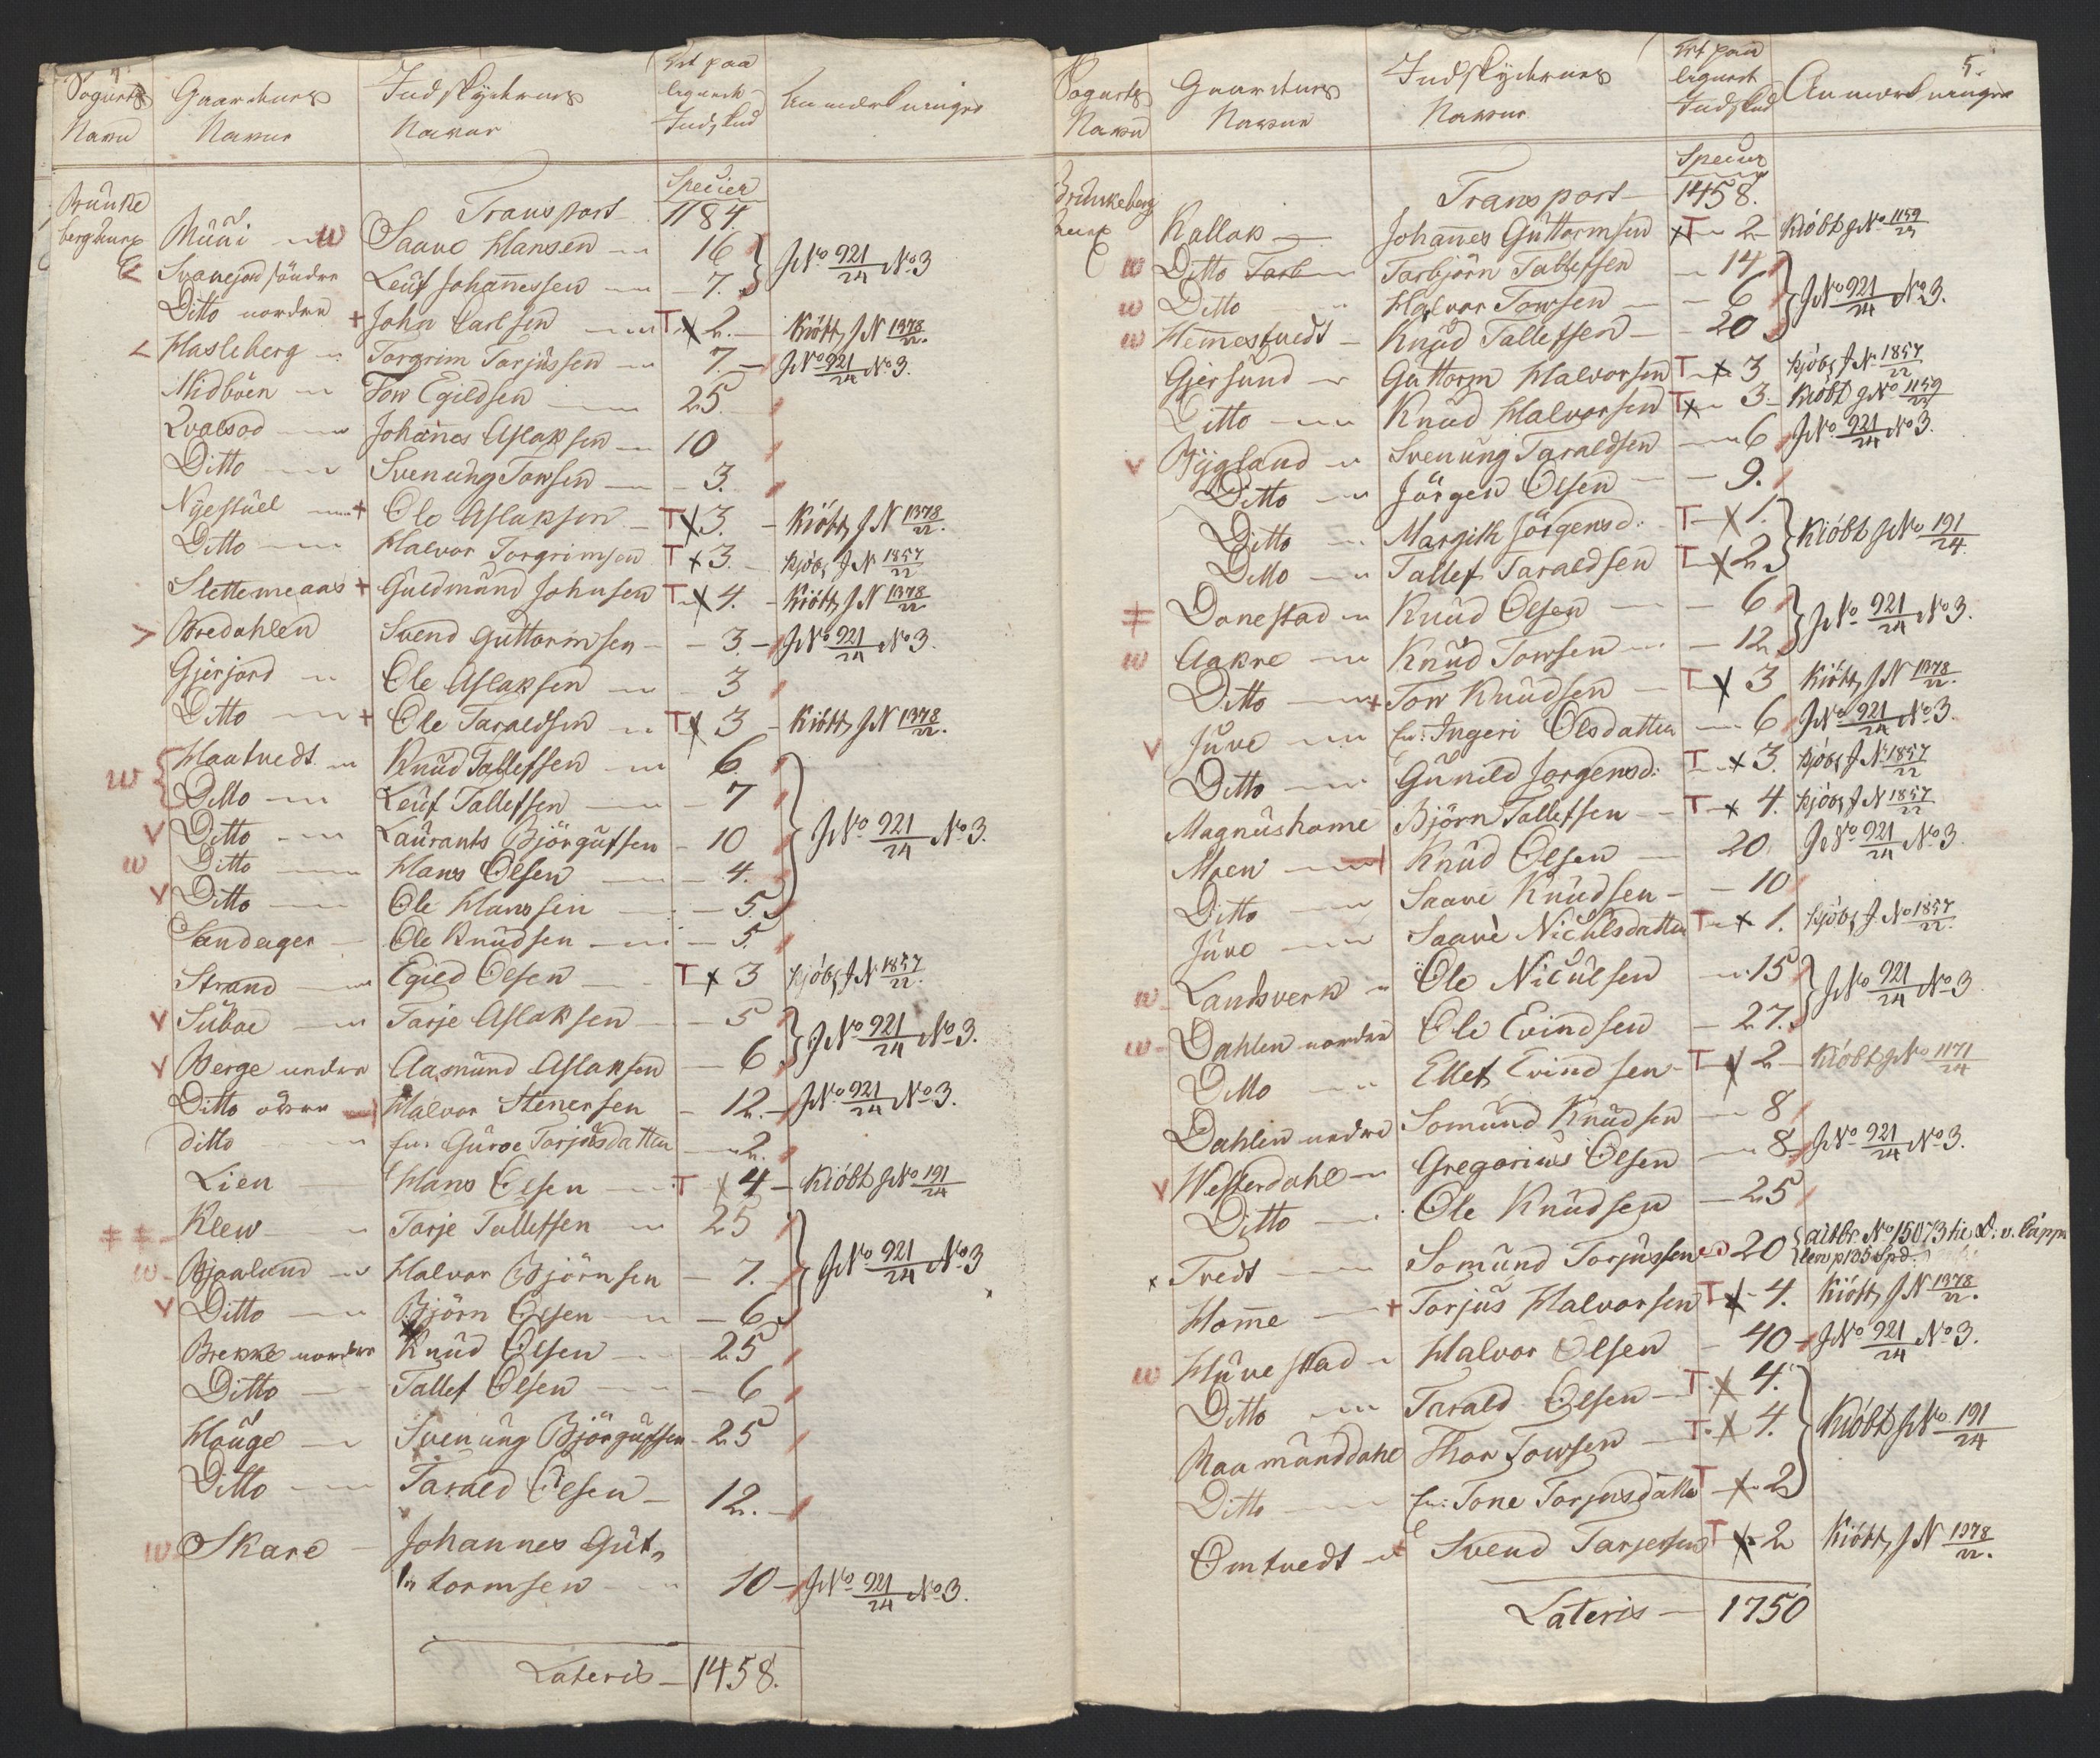 Sognets Navn | Gaardenes Navne | Indskydernes Navne | Det paa lignede Indskud | Anmærkninger
Specier
Brunkebergs | Transport | 1184
Muui | Saave Hansen | 16 | J No 921/24 No 3
Svanejord søndre | Leuf Johannessen | 7.
Ditto nordre + | John Carlsen | T x 2. | Kiöbt, J N 1378/22.
Hasleberg | Torgrim Tarjussen | 7. | J No 921/24 No 3.
Midböen | Tow Egildsen | 25
Qvalsod | Johannes Aslaksen | 10
Ditto | Svenung Towsen | 3.
Nyestuel + | Ole Aslaksen | T x 3. | Kiöbt, J N 1378/22.
Ditto | Halvor Torgrimsen | T x 3. | Kjöbt J N 1857/22
Slettemeaas + | Guldmund Johnsen | T x 4. | Kiöbt, J N 1378/22.
Bredahlen | Svend Guttormsen | 3. | J No 921/24 No 3.
Gjerjord | Ole Aslaksen | 3
Ditto + | Ole Taraldsen | T x 3 | Kiöbt, J N 1378/22.
Haatvedt | Knud Tallefsen | 6
Ditto | Leuf Tallefsen | 7
Ditto | Laurants Björgufsen | 10 | J No 921/24 No 3.
Ditto | Hans Olsen | 4.
Ditto | Ole Hansen | 5.
Sandager | Ole Knudsen | 5.
Strand | Egild Olsen | T x 3 | Kjöbt J N 1857/22.
Subae | Tarje Aslaksen | 5 | J No 921/24 No 3.
Berge nedre | Aasmund Aslaksen | 6
Ditto övre | Halvor Stenersen | 12. | J No 921/24 No 3.
ditto | Guroe Torjusdatter | 2.
Lien | Hans Olsen | T x 4 | Kiöbt J No 191/24
Klew | Tarje Tallefsen | 25
Bjaalund | Halvor Björnsen | 7. | J No 921/24 No 3
Ditto | Björn Olsen | 6
Brekke nordre | Knud Olsen | 25
Ditto | Tallef Olsen | 6
Hauge | Svenung Björgufsen | 25
Ditto | Tarald Olsen | 12.
Skare | Johannes Gut-
tormsen | 10 | J No 921/24 No 3.
Lateris | 1458.
5.
Sognets Navn | Gaardenes Navne | Indskydernes Navne | Det paa lignede Indskud | Anmærkninger
Specier
Brunkeberg | Transport | 1458.
Kallak | Johannes Guttormsen | x T 2 | Kiöbt J No 1159/24
Ditto | Tarbjörn Tallefsen | 14
Ditto | Halvor Towsen | 6 | J No 921/24 No 3.
Hemestvedt | Knud Tallefsen | 20
Gjersund | Guttorm Halvorsen | T x 3 | Kjöbt J N 1857/22
Ditto | Knud Halvorsen | T x 3. | Kiöbt J No 1159/24
Bygland | Svenung Taraldsen | 6 | J No 921/24 No 3.
Ditto | Jörgen Olsen | 9.
Ditto | Margith Jörgensd: | T x 1. | Kiöbt J No 191/24.
Ditto | Tallef Taraldsen | T x 2
Donestad | Knud Olsen | 6 | J No 921/24 No 3.
Aakre | Knud Towsen | 12
Ditto + | Tow Knudsen | T x 3 | Kiöbt, J N 1378/22.
Juve | Ingeri Olsdatter | 6 | J No 921/24 No 3.
Ditto | Gunild Jorgensd: | T x 3. | Kjöbt J N 1857/22
Magnushome | Björn Tallefsen | T x 4. | Kjöbt J N 1857/22
Moen | Knud Olsen | 20 | J No 921/24 No 3.
Ditto | Saave Knudsen | 10
Juve | Saave Nichlsdatter | T x 1. | Kjöbt J No 1857/22.
Landsverk | Ole Niculsen | 15 | J No 921/24 No 3
Dahlen nordre | Ole Evindsen | 27.
Ditto | Ellef Evindsen | T x 2 | Kiöbt J No 1171/24
Dahlen nedre | Somund Knudsen | 8
Westerdahl | Gregorius Olsen | 8 | J No 921/24 No 3.
Ditto | Ole Knudsen | 25
Tvedt | Somund Torjussen | 20
Homme + | Torjus Halvorsen | T x 4. | Kiöbt, J N 1378/22.
Huvestad | Halvor Olsen | 40 | J No 921/24 No 3.
Ditto | Tarald Olsen | T x 4.
Raamunddahl | Thor Towsen | T x 4. | Kiöbt J No 191/24
Ditto | Tone Torjusdatter | T x 2
Omtvedt | Svend Tarjesen | T x 2 | Kiöbt, J N 1378/22.
Lateris | 1750